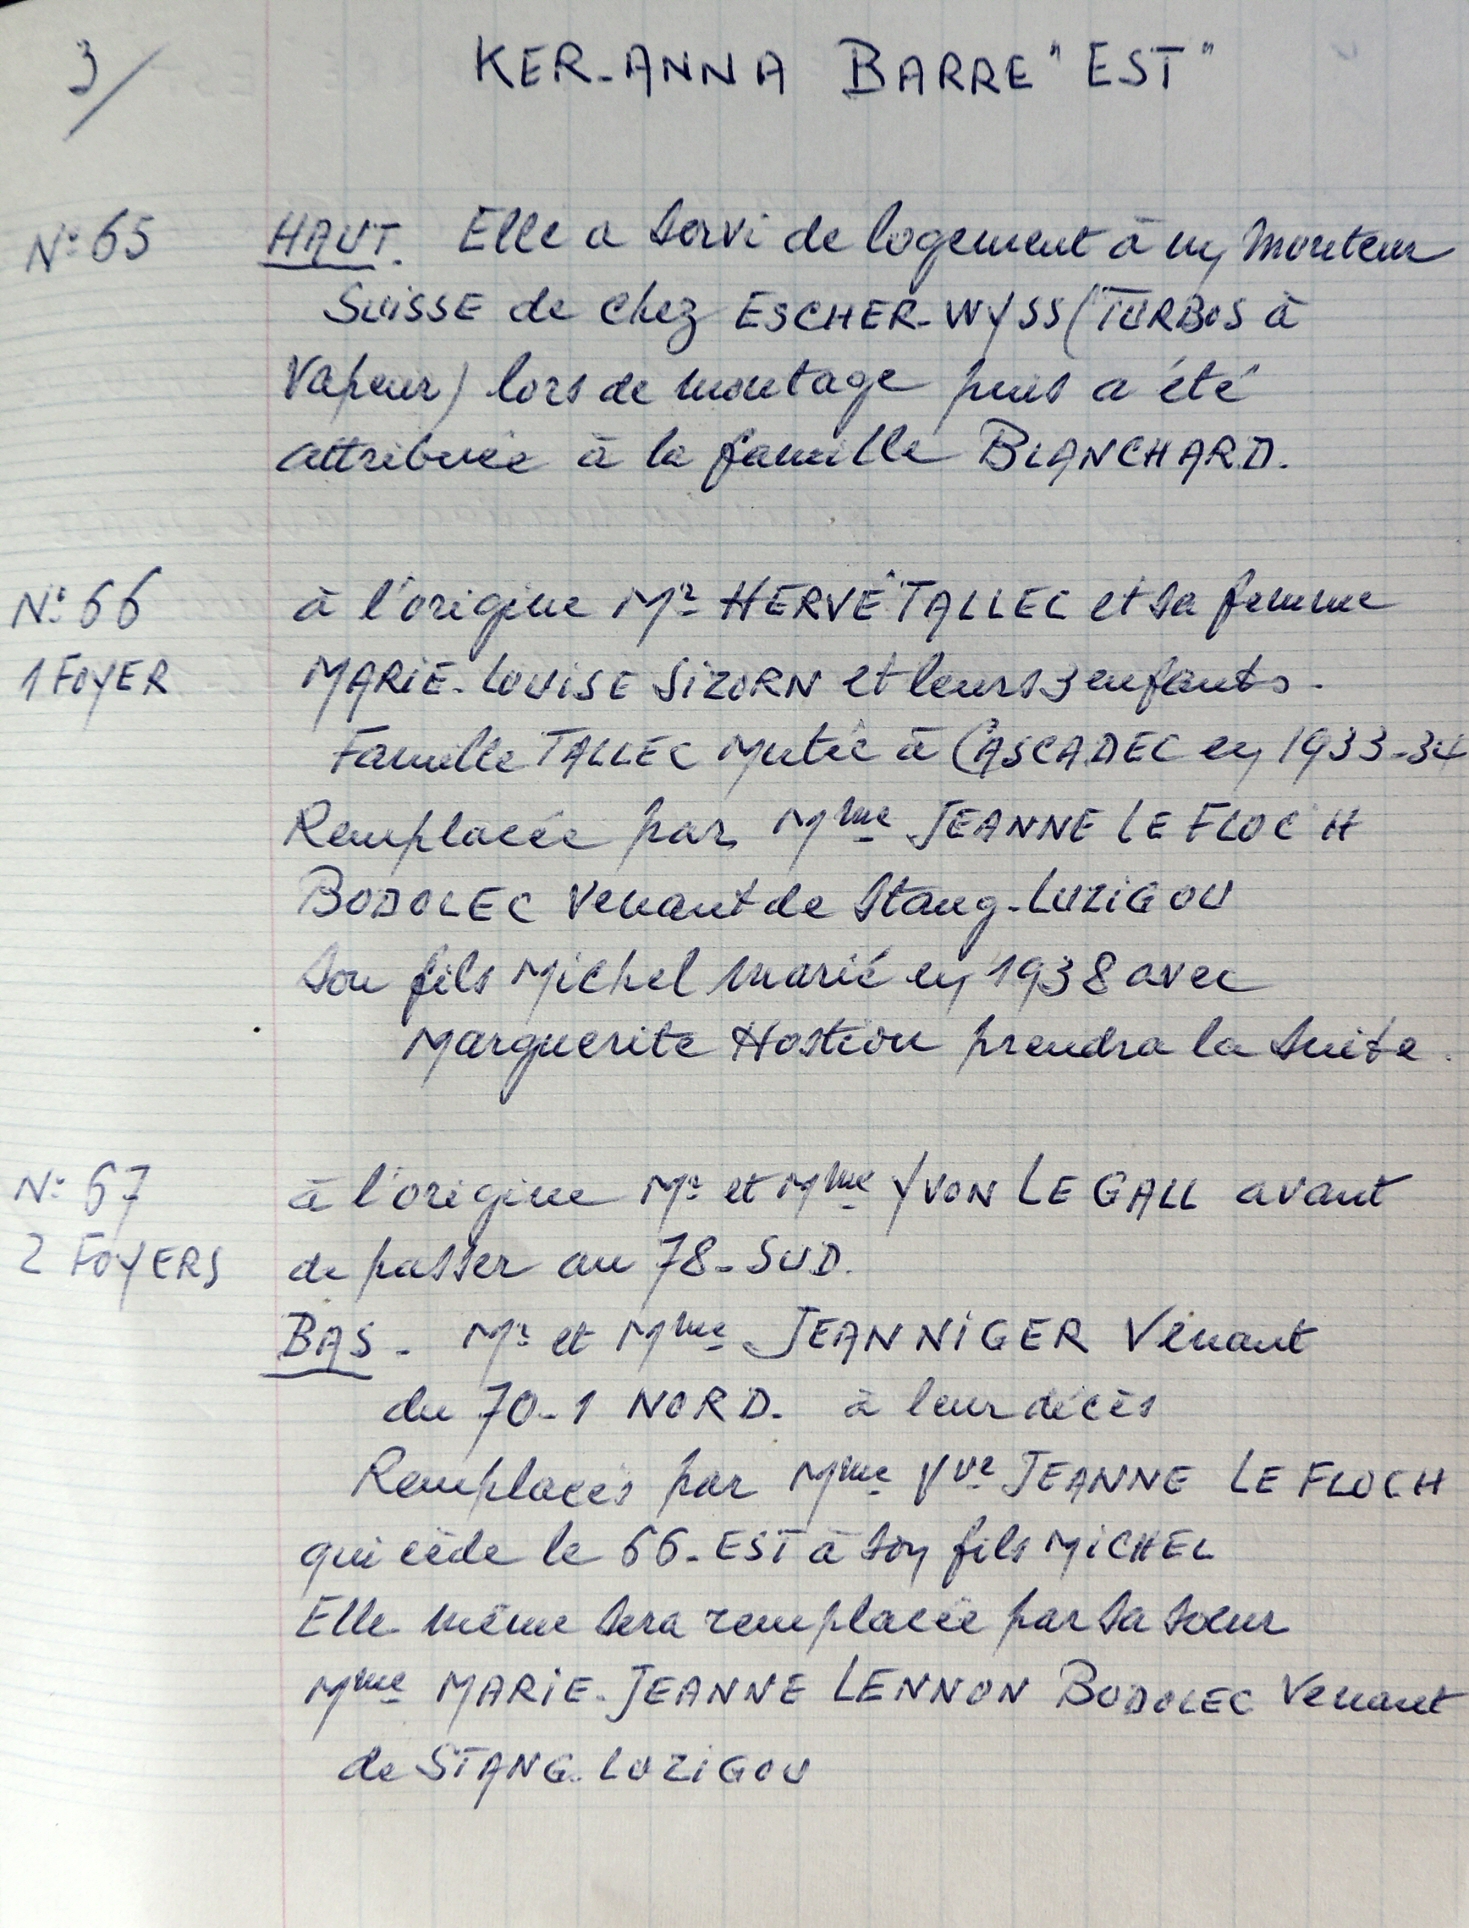 3/
KER-ANNA BARRE "EST"
N° 65 HAUT. Elle a servi de logement à un monteur
Suisse de chez ESCHER-WYSS (TURBOS à
Vapeur) lors de montage puis a été
attribuée à la famille BLANCHARD.
N° 66 à l'origine Mr HERVÉ TALLEC et sa femme
1 FOYER MARIE-LOUISE SIZORN et leurs 3 enfants.
Famille TALLEC Mutée à CASCADEC en 1933-34
Remplacée par Mme JEANNE LE FLOC'H
BODOLEC Venant de Stang-LUZIGOU
Son fils Michel marié en 1938 avec
Marguerite Hostiou prendra la suite.
N° 67 à l'origine Mr et Mme YVON LE GALL avant
2 FOYERS de passer au 78-SUD.
BAS - Mr et Mme JEAN NIGER Venant
du 70-1 NORD. à leur décès
Remplacés par Mme Vve JEANNE LE FLOCH
qui cède le 66-EST à son fils MICHEL
Elle même sera remplacée par sa soeur
Mme MARIE-JEANNE LENNON BODOLEC Venant
de STANG-LUZIGOU